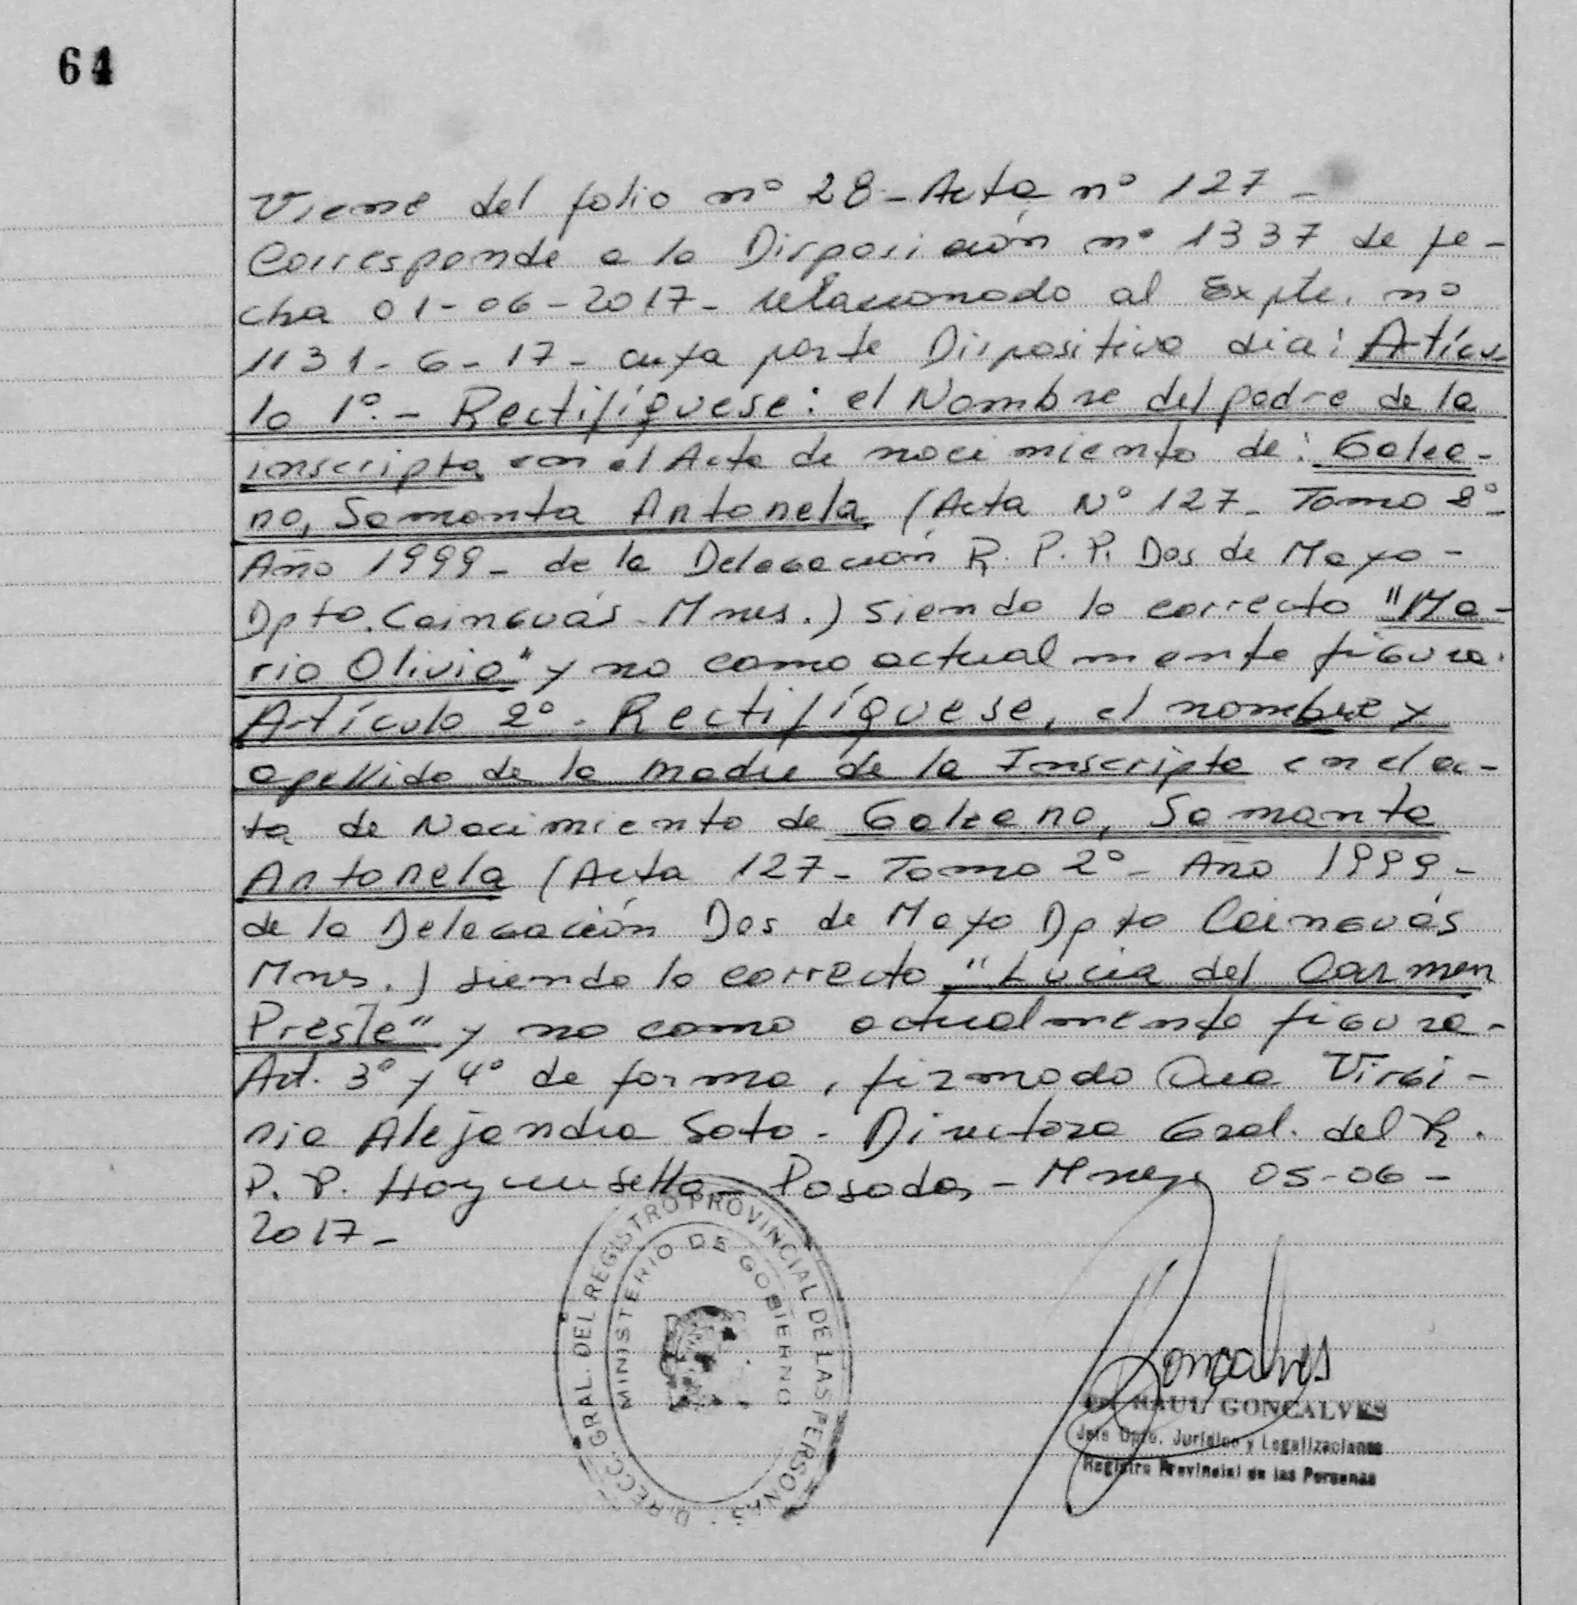 64
Viene del folio nº 28 - Acta nº 127 -
Corresponde a la Disposición nº 1337 de fe-
cha 01-06-2017 - relacionado al Expte. nº
1131-6-17 - cuya parte Dispositiva dice: Artícu-
lo 1º.- Rectifíquese: el Nombre del padre de la
inscripta en el Acta de nacimiento de: Galea-
no, Samanta Antonela (Acta Nº 127 - Tomo 2º -
Año 1999 - de la Delegación R. P. P. Dos de Mayo -
Dpto. Cainguás - Mnes.) siendo lo correcto "Ma-
rio Olivio" y no como actualmente figura.
Artículo 2º - Rectifíquese, el nombre y
apellido de la madre de la Inscripta en el ac-
ta de Nacimiento de Galeano, Samanta
Antonela (Acta 127 - Tomo 2º - Año 1999 -
de la Delegación Dos de Mayo Dpto Cainguás
Mnes.) siendo lo correcto "Lucia del Carmen
Preste" y no como actualmente figura -
Art. 3º y 4º de forma, firmado Dra Virgi-
nia Alejandra Soto - Directora Gral. del R.
P. P. Hay un sello - Posadas - Mnes 05-06-
2017 -
DIRECC. GRAL. DEL REGISTRO PROVINCIAL DE LAS PERSONAS
MINISTERIO DE GOBIERNO
Goncalves
RAUL GONCALVES
Jefe Dpto. Jurídico y Legalizaciones
Registro Provincial de las Personas